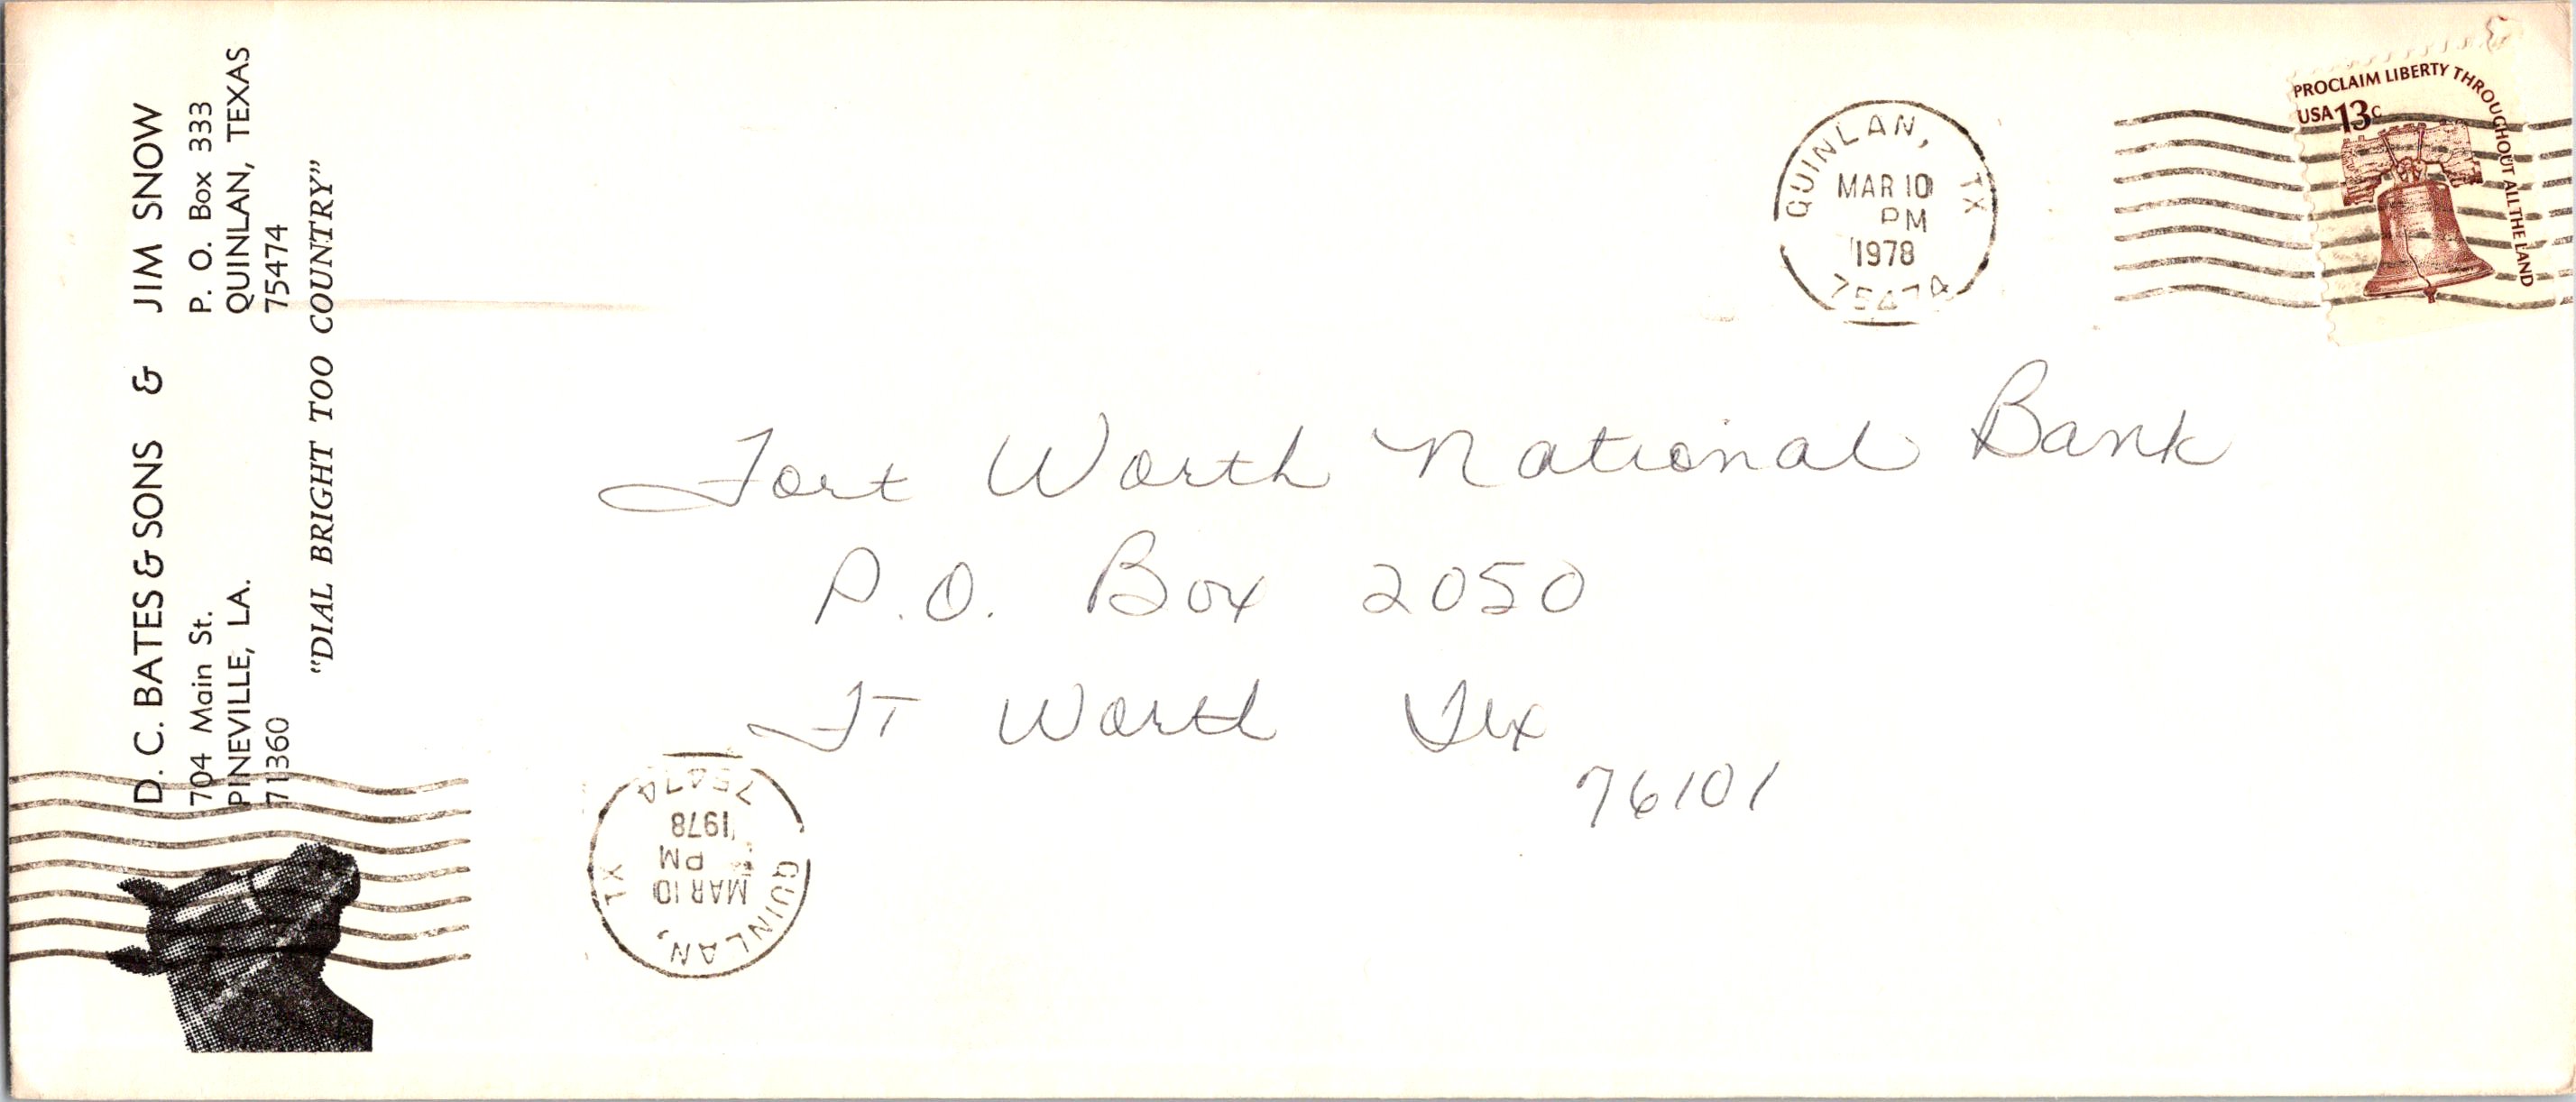 D. C. BATES & SONS & JIM SNOW
704 Main St. P. O. Box 333
PINEVILLE, LA. QUINLAN, TEXAS
71360 75474
"DIAL BRIGHT TOO COUNTRY"
QUINLAN, TX
MAR 10
PM
1978
75474
PROCLAIM LIBERTY THROUGHOUT ALL THE LAND
USA 13c
Fort Worth National Bank
P.O. Box 2050
Ft Worth Tex
76101
QUINLAN, TX
MAR 10
PM
1978
75474